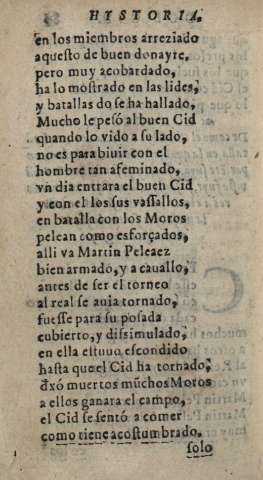 HYSTORIA,
en los miembros arreziado
aquesto de buen donayre,
pero muy acobardado,
ha lo mostrado en las lides,
y batallas do se ha hallado,
Mucho le pesó al buen Cid
quando lo vido a su lado,
no es para biuir con el
hombre tan afeminado,
vn dia entrara el buen Cid
y con el los sus vassallos,
en batalla con los Moros
pelean como esforçados,
alli va Martin Pelaez
bien armado, y a cauallo,
antes de ser el torneo
al real se auia tornado,
fuesse para su posada
cubierto, y dissimulado,
en ella estuuo escondido
hasta que el Cid ha tornado,
dxó muertos mũchos Moros
a ellos ganara el campo,
el Cid se sentó a comer
como tiene acostumbrado.
solo